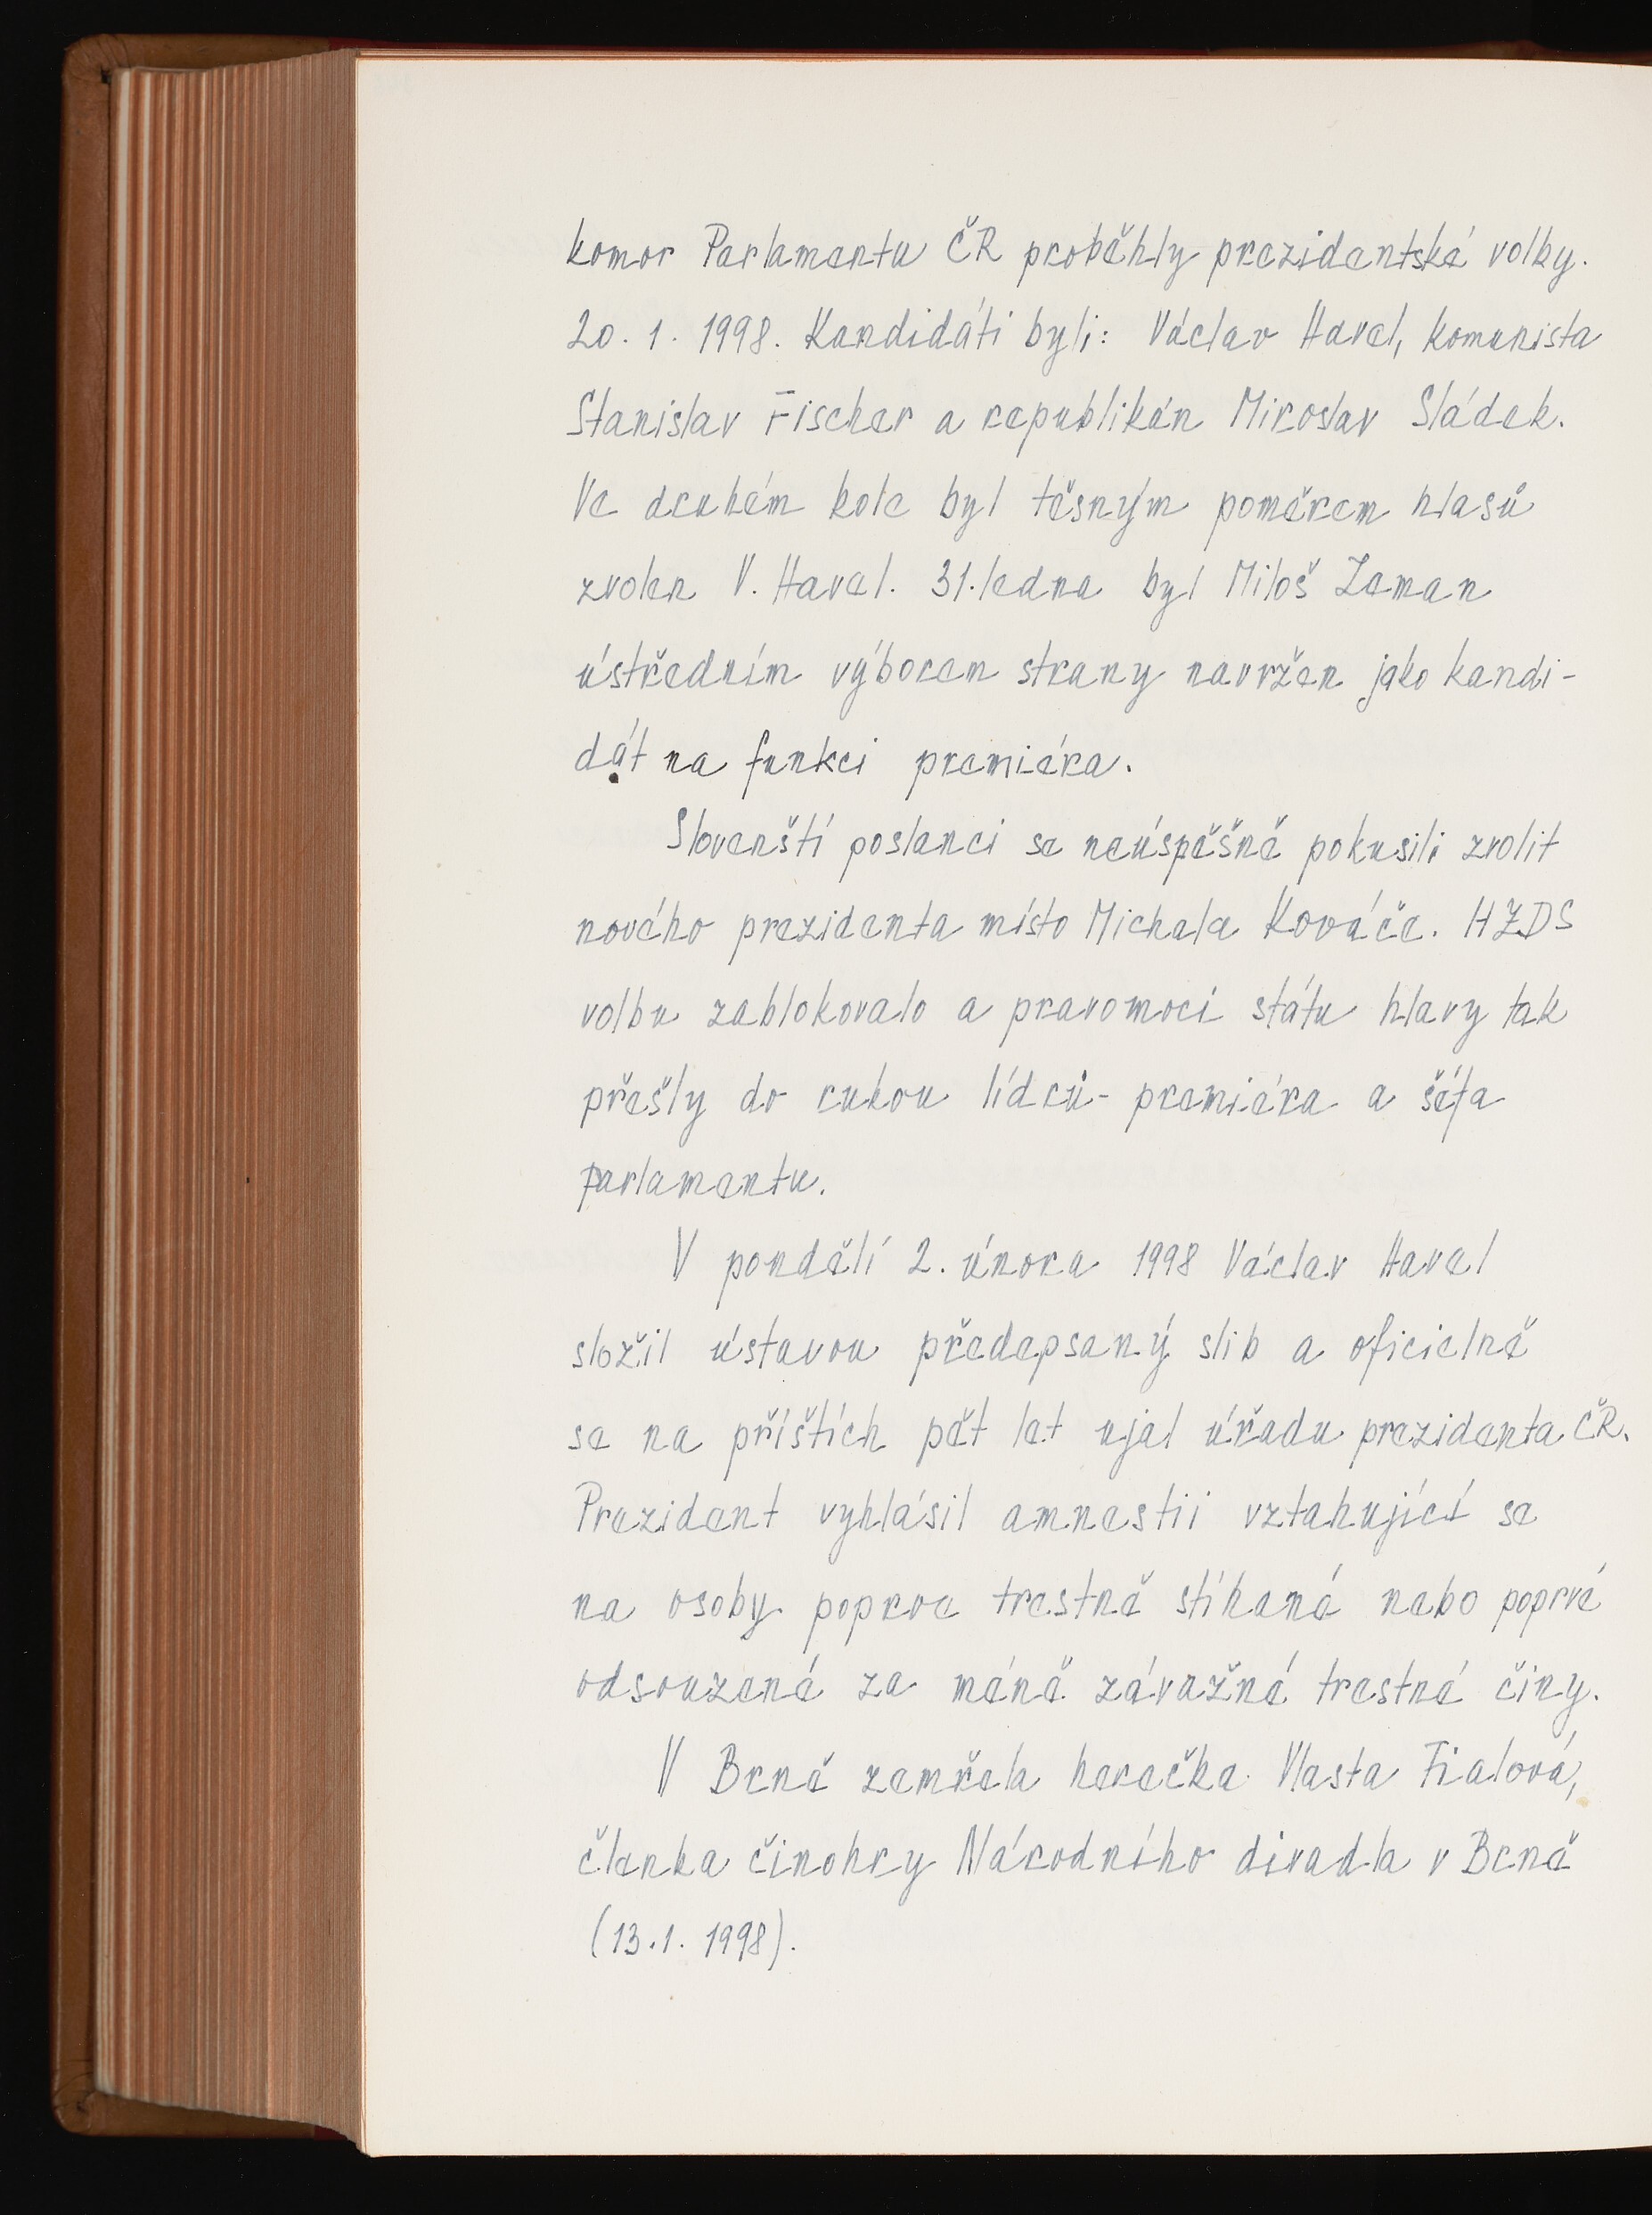 komor Parlamentu ČR proběhly prezidentské volby.
20. 1. 1998. Kandidáti byli: Václav Havel, komunista
Stanislav Fischer a republikán Miroslav Sládek.
Ve druhém kole byl těsným poměrem hlasů
zvolen V. Havel. 31. ledna byl Miloš Zeman
ústředním výborem strany navržen jako kandi-
dát na funkci premiéra.
Slovenští poslanci se neúspěšně pokusili zvolit
nového prezidenta místo Michala Kováče. HZDS
volbu zablokovalo a pravomoci státu hlavy tak
přešly do rukou lídrů - premiéra a šéfa
parlamentu.
V pondělí 2. února 1998 Václav Havel
složil ústavou předepsaný slib a oficielně
se na příštích pět let ujal úřadu prezidenta ČR.
Prezident vyhlásil amnestii vztahující se
na osoby poprve trestně stíhané nebo poprvé
odsouzené za méně závažné trestné činy.
V Brně zemřela herečka Vlasta Fialová,
členka činohry Národního divadla v Brně
(13. 1. 1998).